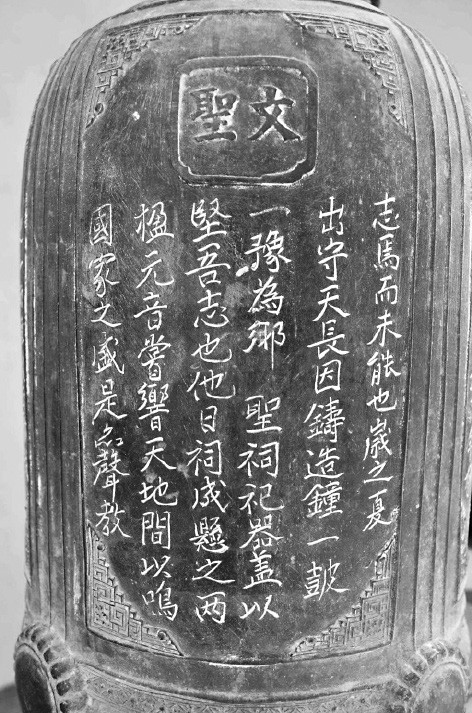 文聖
志焉而未能也歲之夏
出守天長因鑄造鐘一鼓
一豫為鄉 聖祠祀器盖以
堅吾志也他日祠成懸之两
楹元音嘗響天地間以鳴
國家之盛是以聲教